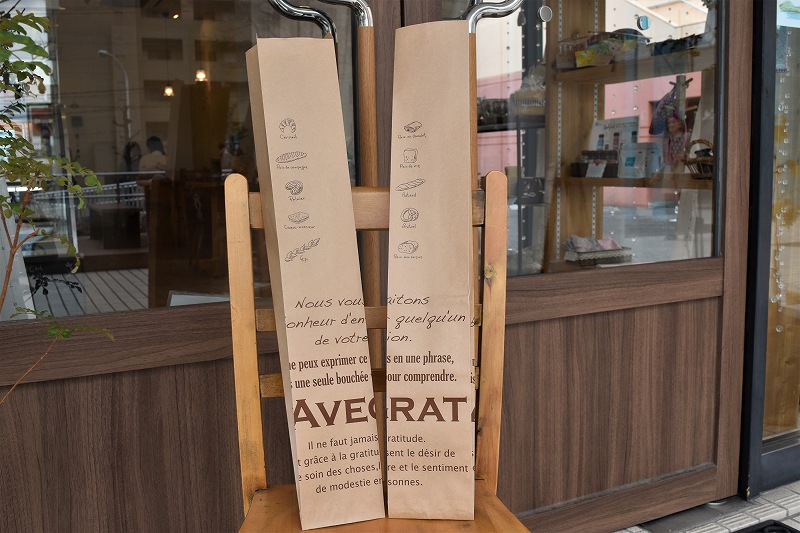 Croissant
Pain au chocolat
Pain de campagne
Pain de mie
Batard
Croque monsieur
Epi
Nous vou
aitons
onheur d'en
quelqu'un
de votre
ion.
ne peux exprimer ce
s en une phrase,
s une seule bouchée
our comprendre.
AVEC
GRAT
Il ne faut jamais
ratitude.
t grâce à la gratitu
sent le désir de
e soin des choses,
re et le sentiment
de modestie en
sonnes.